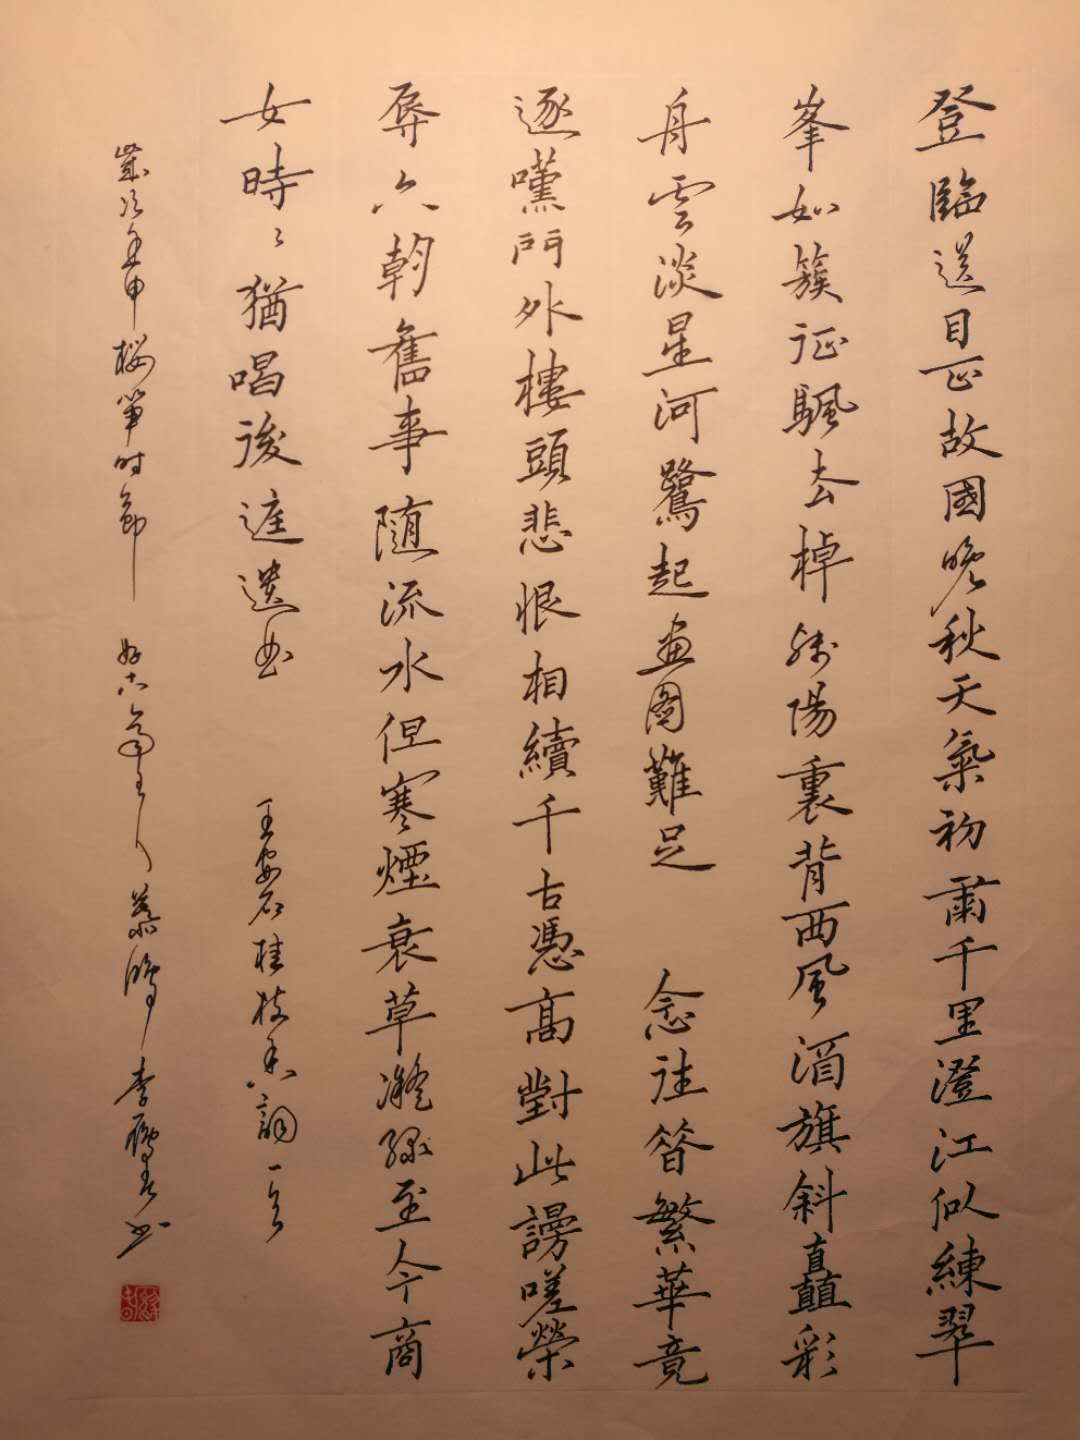 登臨送目正故國晚秋天氣初肅千里澄江似練翠
峯如簇征颿去棹殘陽裏背西風酒旗斜矗彩
舟雲淡星河鷺起画图難足 念往昔繁華竟
逐嘆門外樓頭悲恨相續千古憑高對此謾嗟榮
辱六朝舊事隨流水但寒煙衰草凝綠至今商
女時〻猶唱後庭遺曲
王安石桂枝香詞一首
歲次壬申櫻筍时節